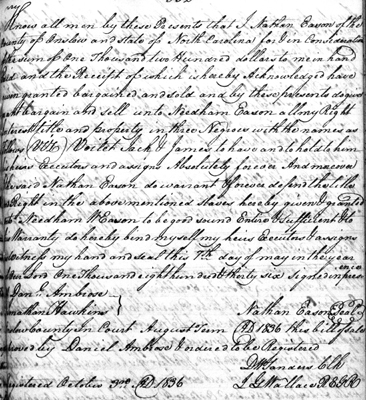 Know all men by these Presents that I Nathan Eason of the
County of Onslow and state of North Carolina for & in Consideration
the sum of One Thousand two Hundred dollars to me in hand
and the Receipt of which is hereby Acknowledged have
granted bargained and sold and by these presents do give
bargain and sell unto Needham Eason all my Right
title and property in three Negroes with the names as
(Viz) Jack & James to have and to hold to him
heirs Executors and assigns Absolutely forever And moreover
the said Nathan Eason do warrant & forever defend the titles
Right in the above mentioned slaves hereby given & granted
Needham W Eason to be good sound Entire & Sufficient
Warranty do hereby bind myself my heirs Executors & assigns
witness my hand and seal this 7th day of may in the year
our Lord One Thousand eight hundred & thirty six signed in presence
Danl Ambrose
Jonathan Hawkins Nathan Eason Seal
County In Court August Term AD 1836 this bill of sale
proved by Daniel Ambrose & ordered to be Registered
D W Sanders Clk
Registered October 3rd AD 1836